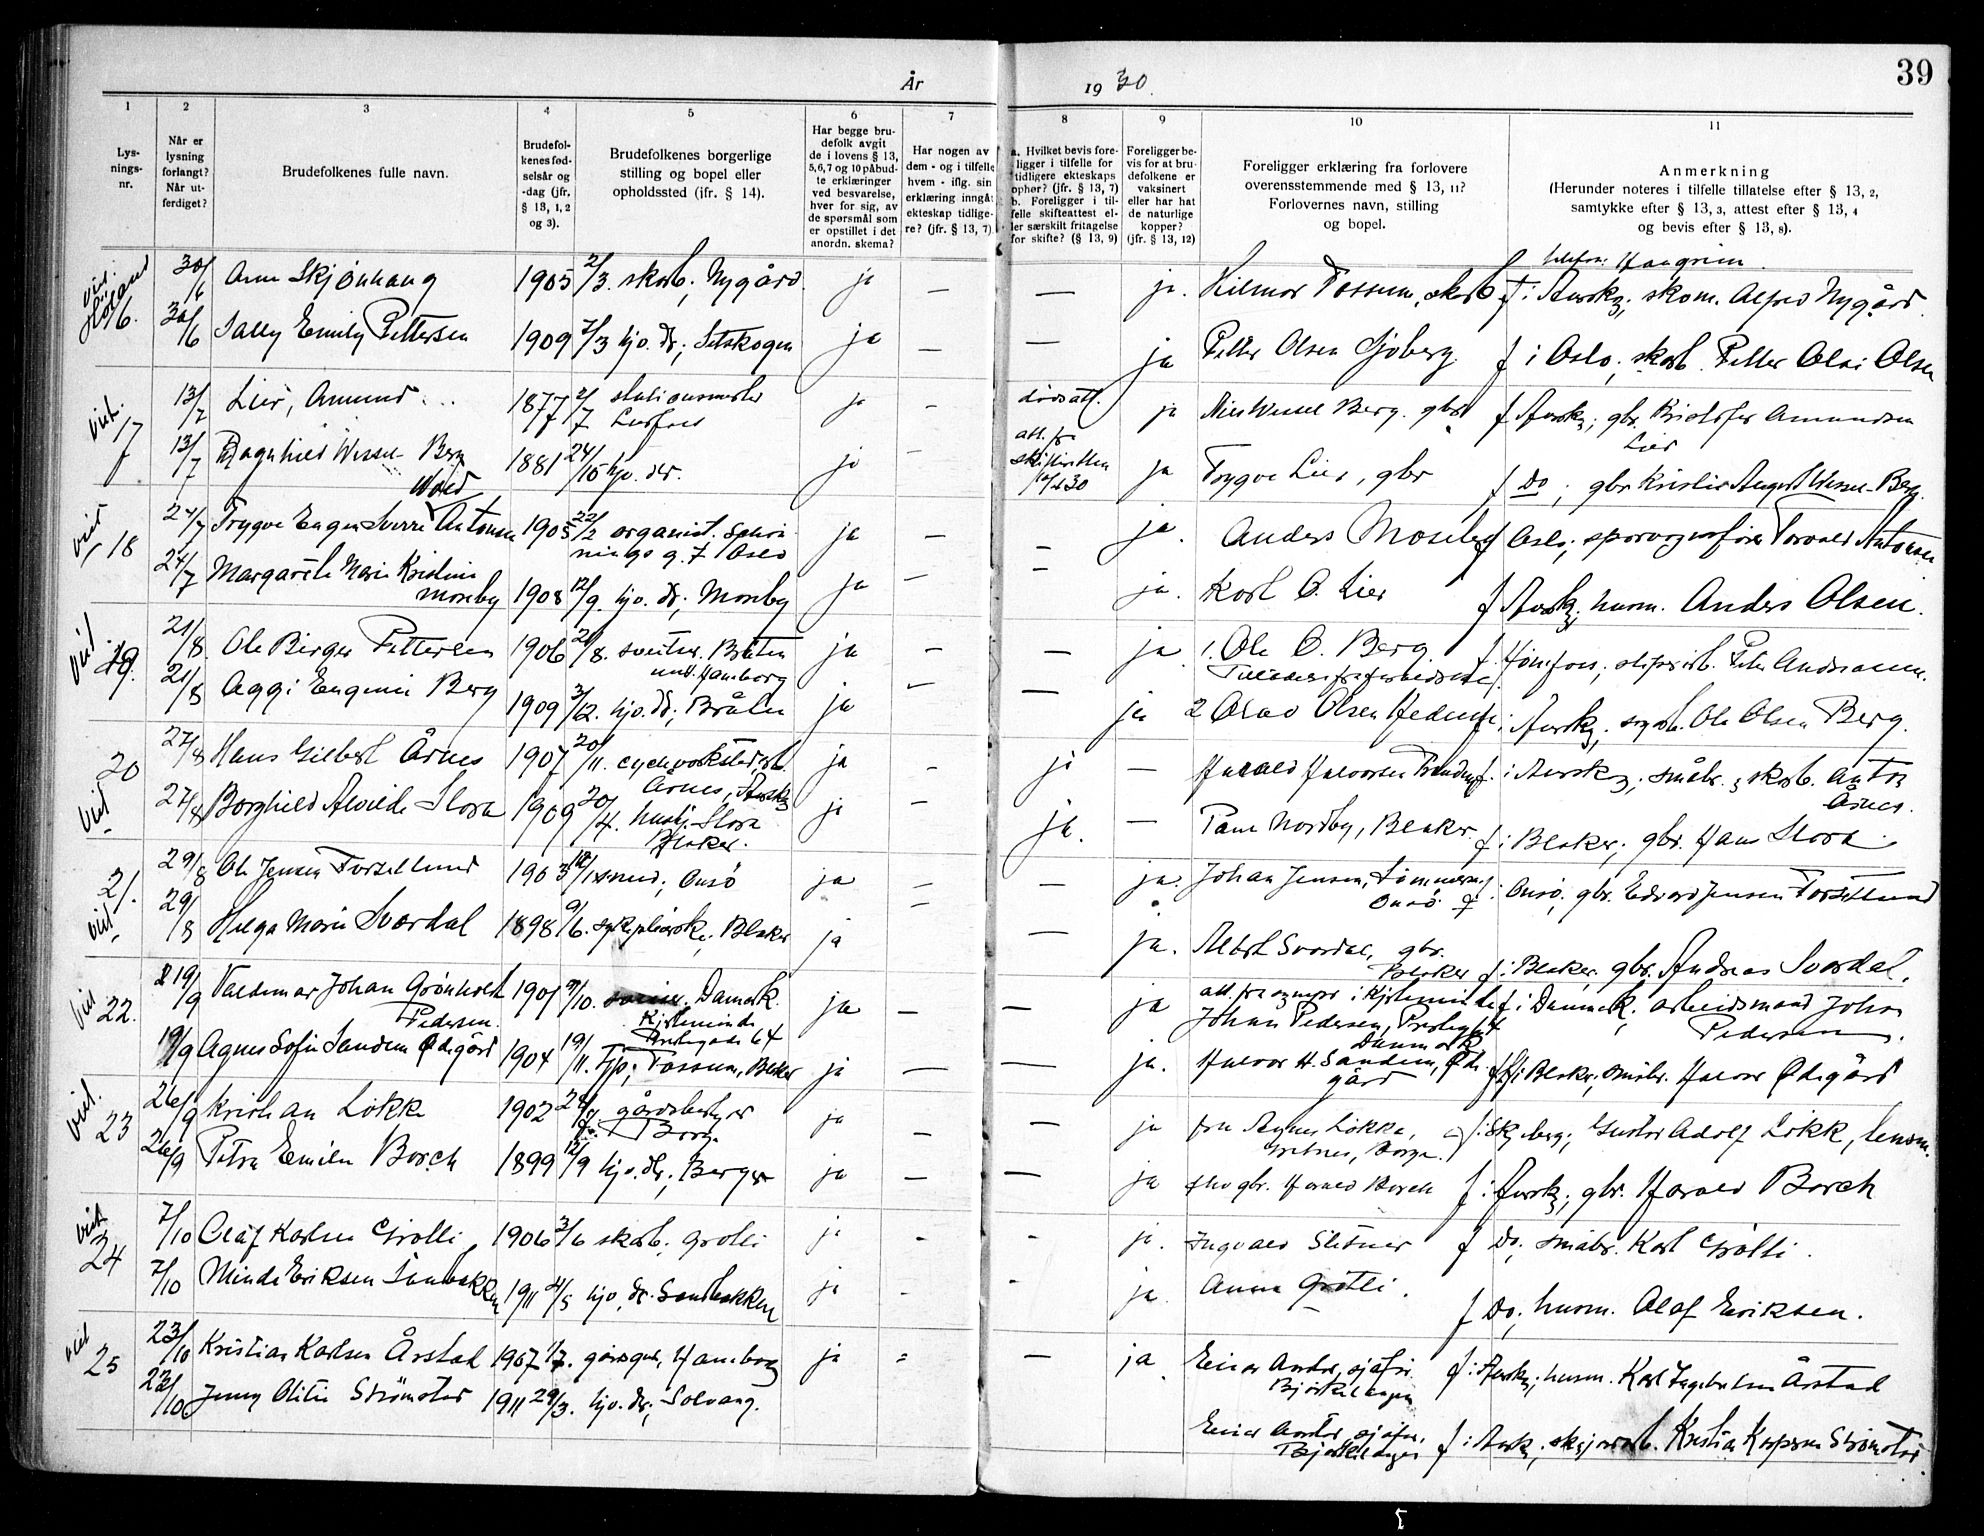 39
År 1930.
1 2 3 4 5 6 7 8 9 10 11
Lys-
nings-
nr.
Når er
lysning
forlangt?
Når ut-
ferdiget?
Brudefolkenes fulle navn.
Brudefol-
kenes fød-
selsår og
-dag (jfr.
§ 13, 1, 2
og 3).
Brudefolkenes borgerlige
stilling og bopel eller
opholdssted (jfr. § 14).
Har begge bru-
defolk avgit
de i lovens § 13,
5, 6, 7 og 10 påbud-
te erklæringer
ved besvarelse,
hver for sig, av
de spørsmål som
er opstillet i det
anordn. skema?
Har nogen av
dem - og i tilfelle
hvem - iflg. sin
erklæring inngåt
ekteskap tidlige-
re? (jfr. § 13, 7)
a. Hvilket bevis fore-
ligger i tilfelle for
tidligere ekteskaps
ophør? (jfr. § 13, 7)
b. Foreligger i til-
felle skifteattest el-
ler særskilt fritagelse
for skifte? (§ 13, 9)
Foreligger be-
vis for at bru-
defolkene er
vaksinert
eller har hat
de naturlige
kopper?
(jfr. § 13, 12)
Foreligger erklæring fra forlovere
overensstemmende med § 13, 11?
Forlovernes navn, stilling
og bopel.
Anmerkning
(Herunder noteres i tilfelle tillatelse efter § 13, 2,
samtykke efter § 13, 3, attest efter § 13, 4
og bevis efter § 13, 8).
viet Høland 16. 30/6 Arne Skjønhaug 1905 2/3. skarb; Nygård ja — — ja. Hilmar Fossum, skarb f i Aursk; skom. Alfred Nygård
30/6 Sally Emily Pettersen 1909 7/3 hjv. dr; Setskogen ja — — ja Petter Olsen Sjøberg f i Oslo; skarb. Petter Olai Olsen
viet. 17 13/7 Lier, Amund 1877 2/7 stationsmester ja — dødsatt. ja Nils Wessel Berg. gbr f Aursk; gbr. Kristofer Amundsen
Lier
13/7 Ragnhild Wessel-Berg 1881 24/10 hjv. dr. ja — att. fr ja Trygve Lier, gbr f Do; gbr Kristian August Wessel-Berg
viet 18 24/7 Trygve Eugen Sverre Antonsen 1905 22/2 organist. ja — — ja. Anders Moseby f Oslo; sporvognsfører Torvald Antonsen
7 Oslo
24/7 Margarete Marie Kristine
Moseby 1908 12/9. hjv. dr; Moseby ja — — ja. Karl O. Lier f Aursk; husm. Anders Olsen.
viet 19. 21/8. Ole Birger Pettersen 1906 2/8. Bråten ja — — ja 1. Ole O. Berg f. Hønefoss; Peter Andreassen.
21/8 Aggi Eugenie Berg 1909 3/12. hjv. dr; Bråten ja — — ja 2 Olav Olsen f. i Aursk; Ole Olsen Berg.
20 viet 27/8 Hans Gilbert Årnes 1907 20/11. ja — ja — Harald Halvorsen f. i Aursk; småbr. & skarb. Anton
Årnes, Aursk Årnes.
27/8 Borghild Alvilde Slora 1909 20/4. hush. Slora ja — ja. — Paul Nordby, Blaker. f i Blaker; gbr. Hans Slora.
Blaker.
21. viet. 29/8 Ole Jensen Torsetlund 1903 smed; Onsö ja — — ja. Johan Jensen, tømmerm. f i Onsö; gbr. Edvard Jensen Torsetlund
Onsö
29/8 Helga Marie Svardal 1898 9/6. sykepleierske; Blaker ja — — ja. Albert Svardal, gbr.
Blaker f i Blaker; gbr. Andreas Svardal.
viet 22. 19/9 Valdemar Johan Grönholt 1901 9/10. Danmark. ja — — ja i Kjerteminde f i Danmark; arbeidsmand Johan
Pedersen. Kjerteminde Johan Pedersen, Pedersen.
64 Danmark
19/9 Agnes Sofie Sandem Ødegård 1904 19/11. Tjp; Fossum, Blaker ja — — ja. Halvor H. Sandem, Øde- f i Blaker; småbr. Halvor Ødegård
gård
viet. 23 26/9 Kristian Løkke 1902 gårdsbestyrer ja — — ja fru Agnes Løkke, f i Skjeberg; Gustav Adolf Løkke, lensm.
Borge Borge.
26/9 Petra Emilie Borch 1899 12/9 hjv. dr; Berger ja — — ja gbr. Harald Borch f i Aursk; gbr. Harald Borch
viet 24 7/10 Olaf Karlsen Grøtli 1906 3/6 skarb; Grøtli ja - - ja. Ingvald Slitner f Do; småbr. Karl Grøtli.
7/10 Minda Eriksen Sandbakken 1911 4/5 hjv. dr. Sandbakken ja - - ja Anna Grøtli. f Do; husm. Olaf Eriksen.
viet 25 23/10 Kristian Karlsen Årstad 1907 1/7. Haneborg ja = — ja Einar Andor, sjåfør f i Aursk; husm. Karl Ingebretsen Årstad
Bjørkelangen
22/10 Jenny Otilie Strømster 1911 29/3. hjv. dr; Solvang.
Einar Andor, sjåfør, f i Aursk; Kristian Kaspersen Strømster.
Bjørkelangen